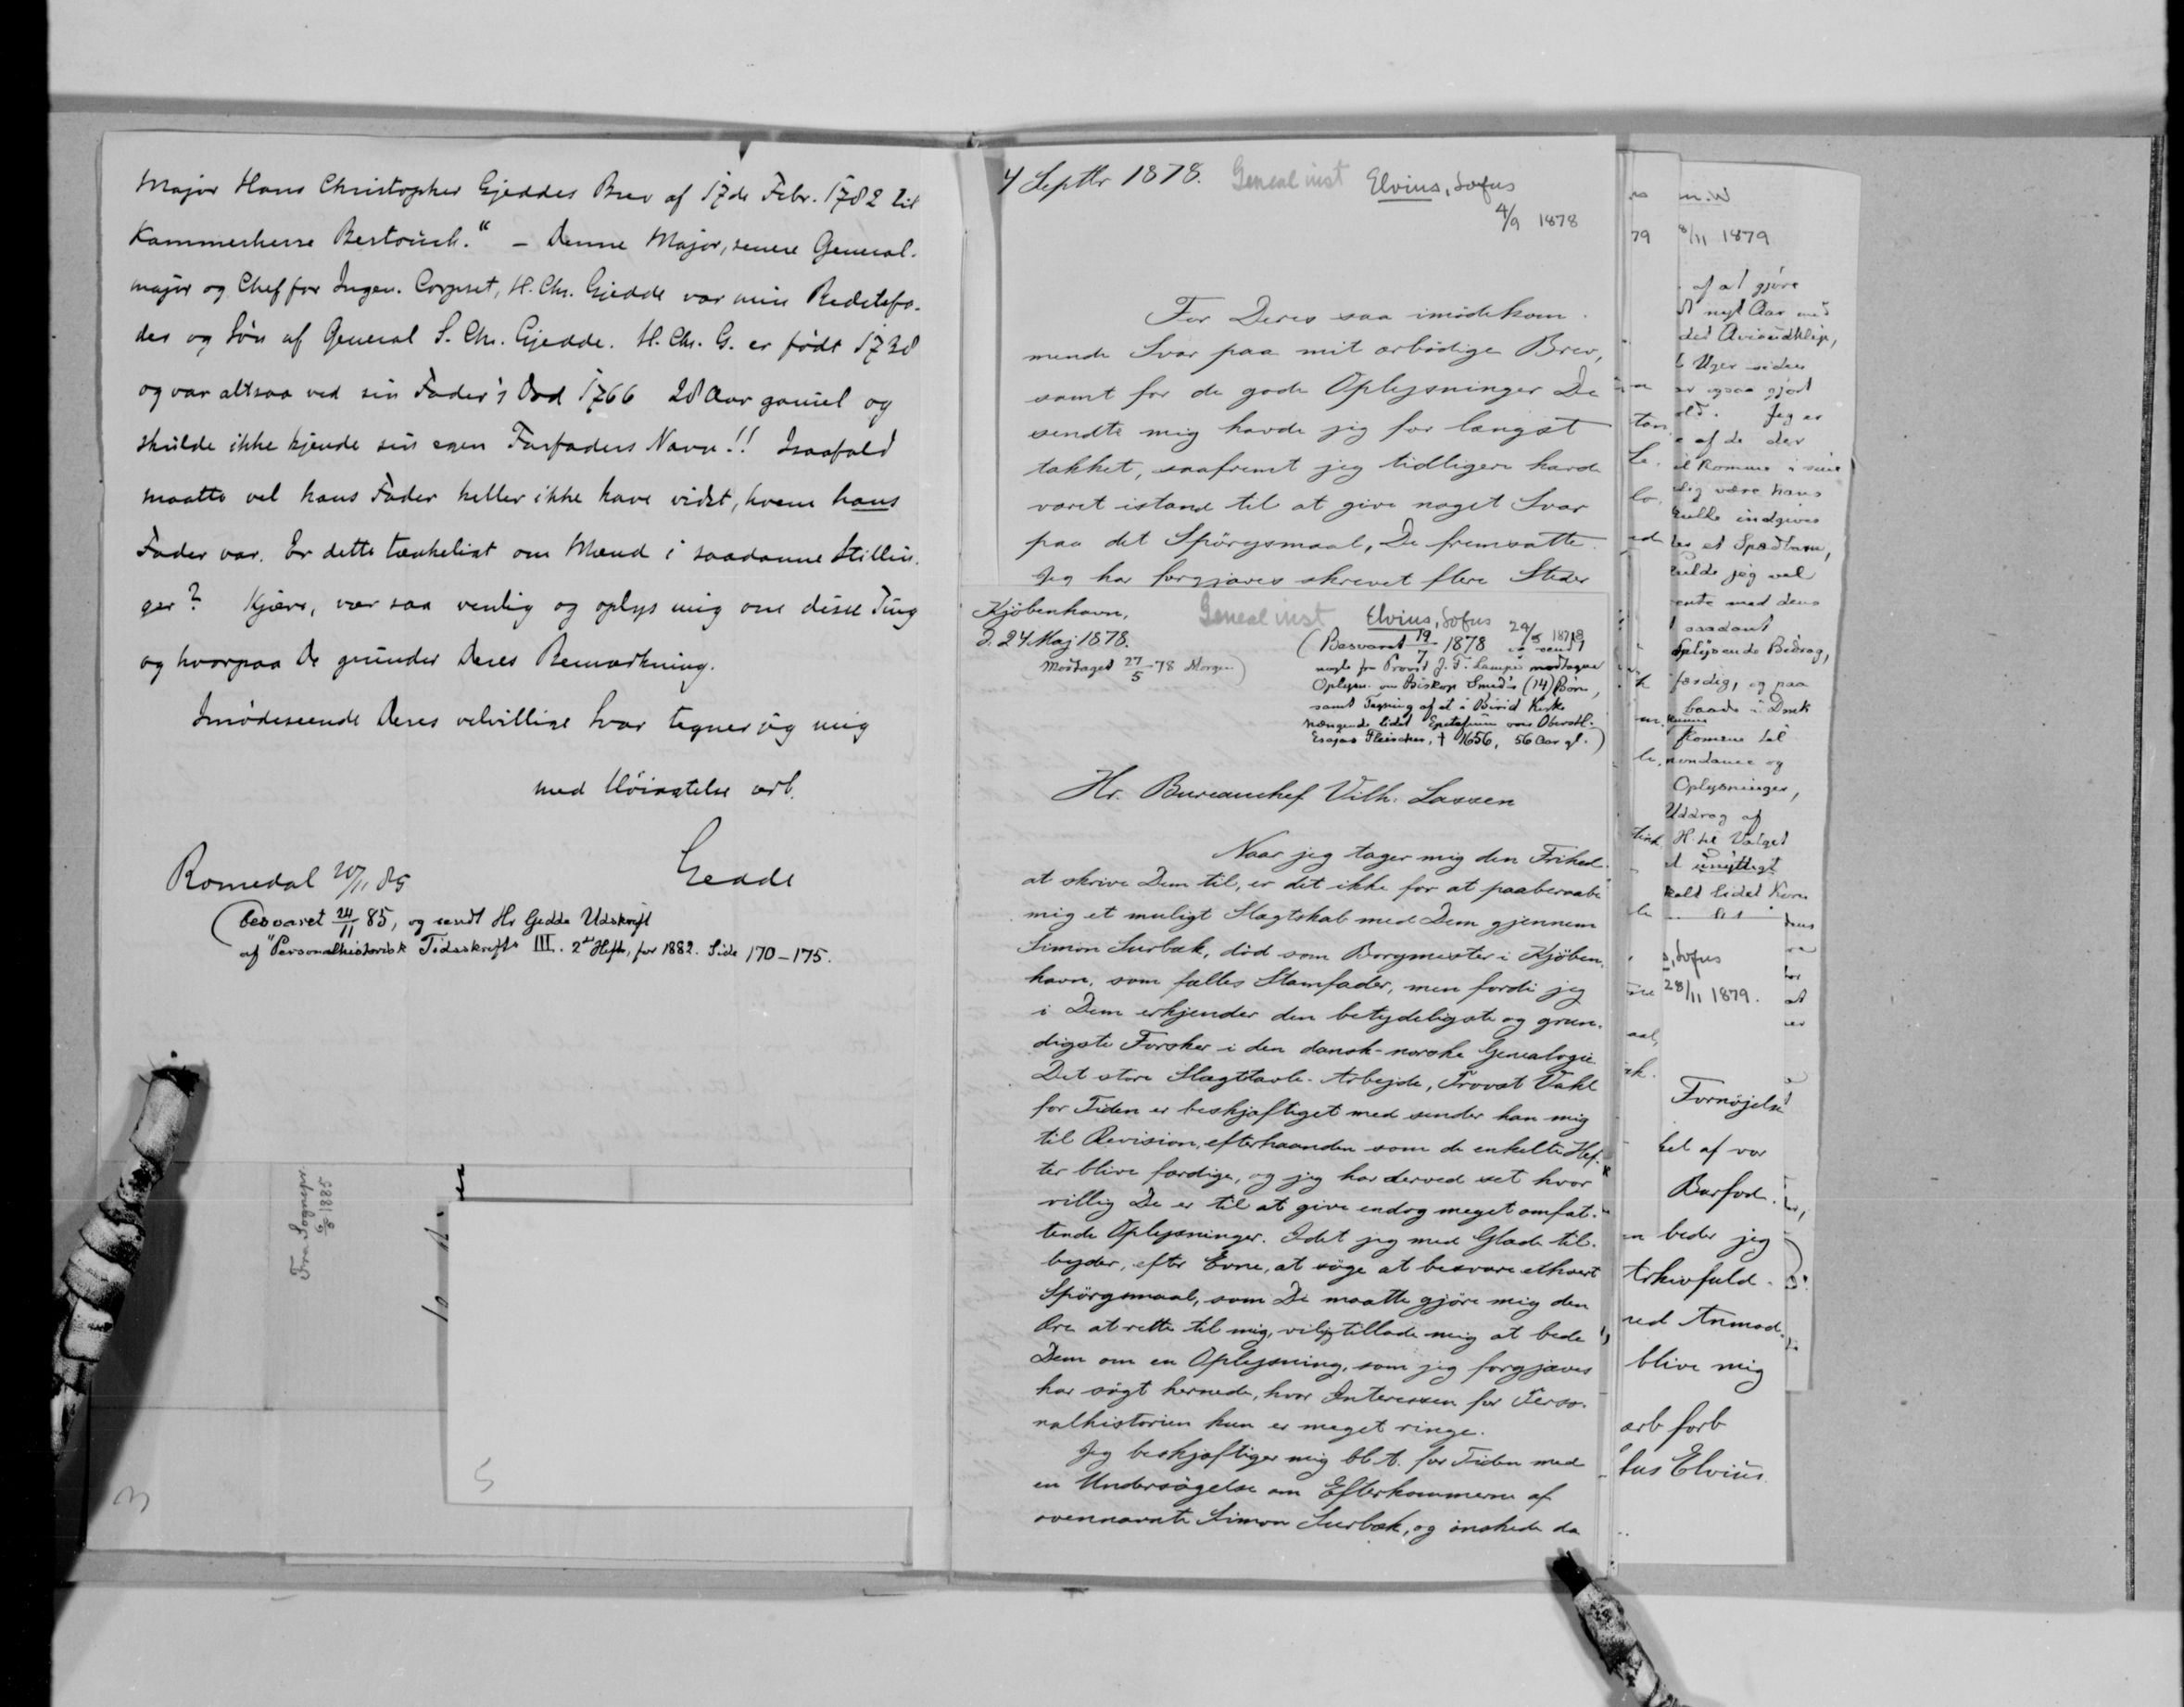 Major Hans Christopher Gjeddes Brev af 17de Febr. 1782 til
Kammerherre Bertouch." – Denne Major, senere General-
major og Chef for Ingen. Corpset, H. Chr. Gjedde var min Bedstefa-
der og Søn af General S. Chr. Gjedde. H. Chr. G. er født 1738
og var altsaa ved sin Fader's Død 1766 28 Aar gamel og
skulde ikke kjende sin egen Farfaders Navn!! Isaafald
maatte vel hans Fader heller ikke have vidst, hvem hans
Fader var. Er dette tænkeligt om Mænd i saadanne Stillin-
ger? Kjære, vær saa venlig og oplys mig om disse Ting
og hvorpaa De grunder Deres Bemærkning.
Imødeseende Deres velvillige Svar tegner jeg mig
med Høiagtelse ærb.
Gedde
Romedal 20/11 85
(besvaret 24/11 85, og sendt Hr Gedde Udskrift
af "Personalhistorisk Tidsskrift" III. 2det Hefte, for 1882. Side 170–175.
Fra Sognepr.
6/8 1885
5
3
4 Septbr 1878. Geneal inst Elvius, Sofus
4/9 1878
For Deres saa imødekom-
mende Svar paa mit ærbødige Brev,
samt for de gode Oplysninger De
sendte mig havde jeg for længst
takket, saafremt jeg tidligere havde
været istand til at give noget Svar
paa det Spörgsmaal, De fremsatte.
Jeg har forgjæves skrevet flere Steder
Kjöbenhavn,
d. 24 Maj 1878.
Modtaget 27/5 -78 Morgen)
Geneal inst Elvius, Sofus 24/5 1878
(Besvaret 19/7 1878 og sendt
nogle fra Provst J. F. Lampe modtagne
Oplysn. om Biskop Smed's (14) Børn,
samt Tegning af et i Birid Kirke
hængende lidet Epitafium over Oberstl.
Esajas Fleischer, † 1656, 56 Aar gl.)
Hr. Bureauchef Vilh. Lassen
Naar jeg tager mig den Frihed
at skrive Dem til, er det ikke for at paaberaabe
mig et muligt Slægtskab med Dem gjennem
Simon Surbæk, död som Borgmester i Kjöben-
havn, som fælles Stamfader, men fordi jeg
i Dem erkjender den betydeligste og grun-
digste Forsker i den dansk-norske Genealogie
Det store Slægttavle-Arbejde, Provst Vahl
for Tiden er beskjæftiget med sender han mig
til Revision, efterhaanden som de enkelte Hef-
ter blive færdige, og jeg har derved set hvor
villig De er til at give endog meget omfat-
tende Oplysninger. Idet jeg med Glæde til-
byder, efter Evne, at söge at besvare ethvert
Spörgsmaal, som De maatte gjöre mig den
Ære at rette til mig, vil jeg tillade mig at bede
Dem om en Oplysning, som jeg forgjæves
har sögt hernede, hvor Interessen for Perso-
nalhistorien kun er meget ringe.
Jeg beskjæftiger mig bl. A. for Tiden med
en Undersögelse om Efterkommerne af
ovennævnte Simon Surbæk, og önskede da
79 8/11 1879
af at gjøre
nyt Aar med
ded Avisudklip,
Uger siden
ar ogsaa gjort
Jeg er
af de der
il komme i
dig være hans
indgives
et Spædbarn,
jeg vel
ente med dens
saadant
Oplysende Bidrag,
færdig, og paa
baade i Dansk
komme til
nondance og
Oplysninger,
Uddrag af
H til Valget
et unyttigt
kalt lidet Kors
s, Sofus
28/11 1879.
Fornöjelse
ket af vor
Barfod.
en beder jeg
Arkivfuld-
ved Anmod-
blive mig
ærb forb
fus Elvius